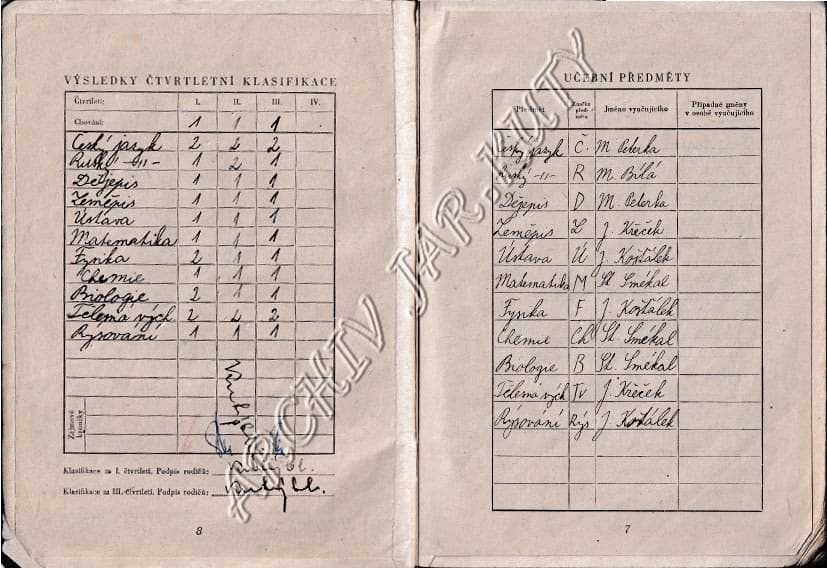 VÝSLEDKY ČTVRTLETNÍ KLASIFIKACE
Čtvrtletí: I. II. III. IV.
Chování: 1 1 1
Český jazyk 2 2 2
Ruský -II- 1 2 1
Dějepis 1 1 1
Zeměpis 1 1 1
Ústava 1 1 1
Matematika 1 1 1
Fysika 2 1 1
Chemie 1 1 1
Biologie 2 1 1
Tělesná vých 2 2 2
Rýsování 1 1 1
Zájmové kroužky
Klasifikace za I. čtvrtletí. Podpis rodičů:
Klasifikace za III. čtvrtletí. Podpis rodičů:
8
UČEBNÍ PŘEDMĚTY
Předmět Značka předmětu Jméno vyučujícího Případné změny v osobě vyučujícího
Český jazyk Č. M. Peterka
Ruský -II- R M. Bílá
Dějepis D M. Peterka
Zeměpis Z J. Křeček
Ústava Ú J. Košťálek
Matematika M St. Smékal
Fysika F J. Košťálek
Chemie Ch St. Smékal
Biologie B St. Smékal
Tělesná vých Tv J. Křeček
Rýsování Rýs J. Košťálek
7
ARCHIV JAR.KUTY